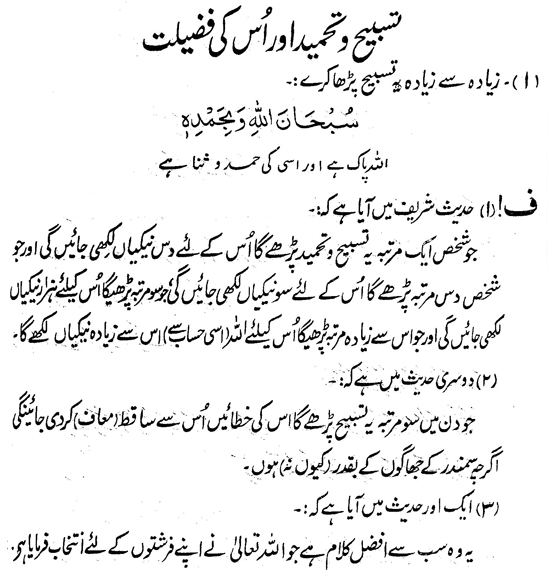 تسبیح و تحمید اور اُس کی فضیلت
(۱)۔ زیادہ سے زیادہ یہ تسبیح پڑھا کرے:۔
سُبْحَانَ اللّٰهِ وَبِحَمْدِهٖ
اللہ پاک ہے اور اسی کی حمد و ثنا ہے
ف! (۱) حدیث شریف میں آیا ہے کہ:۔
جو شخص ایک مرتبہ یہ تسبیح و تحمید پڑھے گا اُس کے لئے دس نیکیاں لکھی جائیں گی اور جو
شخص دس مرتبہ پڑھے گا اُس کے لئے سو نیکیاں لکھی جائیں گی، جو سو مرتبہ پڑھیگا اُس کیلئے ہزار نیکیاں
لکھی جائیں گی اور جو اس سے زیادہ مرتبہ پڑھیگا اُس کیلئے اللہ (اسی حساب سے) اس سے زیادہ نیکیاں لکھے گا۔
(۲) دوسری حدیث میں ہے کہ:۔
جو دن میں سو مرتبہ یہ تسبیح پڑھے گا اس کی خطائیں اُس سے ساقط (معاف) کر دی جائینگی
اگرچہ سمندر کے جھاگوں کے بقدر (کیوں نہ) ہوں۔
(۳) ایک اور حدیث میں آیا ہے کہ:۔
یہ وہ سب سے افضل کلام ہے جو اللہ تعالیٰ نے اپنے فرشتوں کے لئے انتخاب فرمایا ہو۔